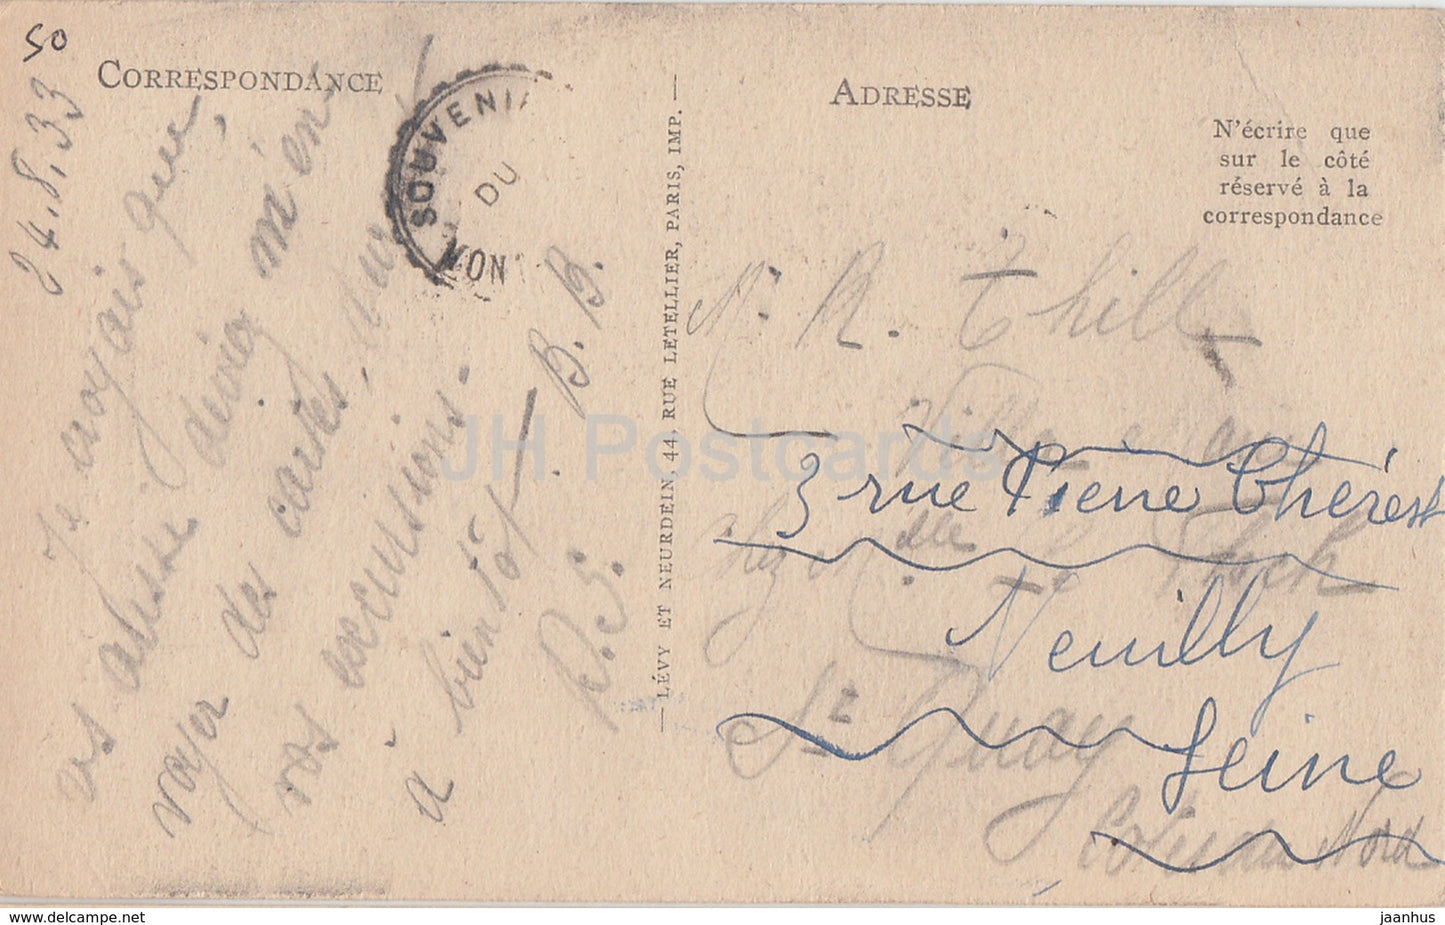 50
CORRESPONDANCE
24.8.33
Je croyais que,
deviez m'en
voyer des cartes, 
vos excursions.
à bientôt. B. B.
SOUVENIR
DU
MONT
LÉVY ET NEURDEIN, 44, RUE LETELLIER, PARIS, IMP.
ADRESSE
N'écrire que
sur le côté
réservé à la
correspondance
R. Thill
Villa
3 rue Pierre Chérest
Foch
Neuilly
St Quay
Seine
Côtes du Nord
JH Postcards
delcampe.net
jaanhus